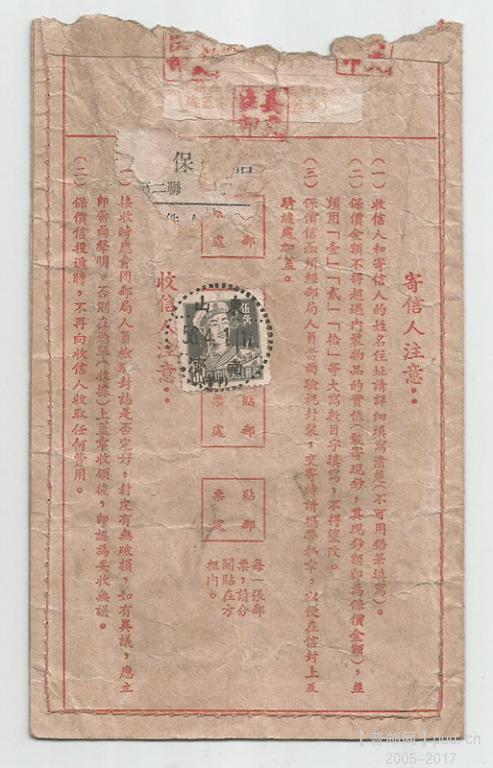 寄信人注意：
(一) 收信人和寄信人的姓名住址請詳細填寫清楚(不可用鉛筆填寫)。
(二) 保價金額不得超過內裝物品的實值(裝寄現鈔，其現鈔額即為保價金額)，並
須用「壹」「貳」「拾」等大寫數目字填寫，不得塗改。
(三) 保價信函須經郵局人員當面驗視封裝，交寄時請攜帶私章，以便在信封上及
騎縫處加蓋。
保
聯二第
郵
處
貼郵
票處
貼郵
票處
每一張郵
票，請分
開貼在方
框內。
山東
56.4.1
收信人注意：
接收時應會同郵局人員檢驗封誌是否完好，封皮有無破損，如有異議，應立
即當面聲明。否則在憑單(收據)上蓋章收領後，即認為妥收無誤。
(二) 保價信投遞時，不再向收信人收取任何費用。
[普邮网] puu.cn
2005-2017